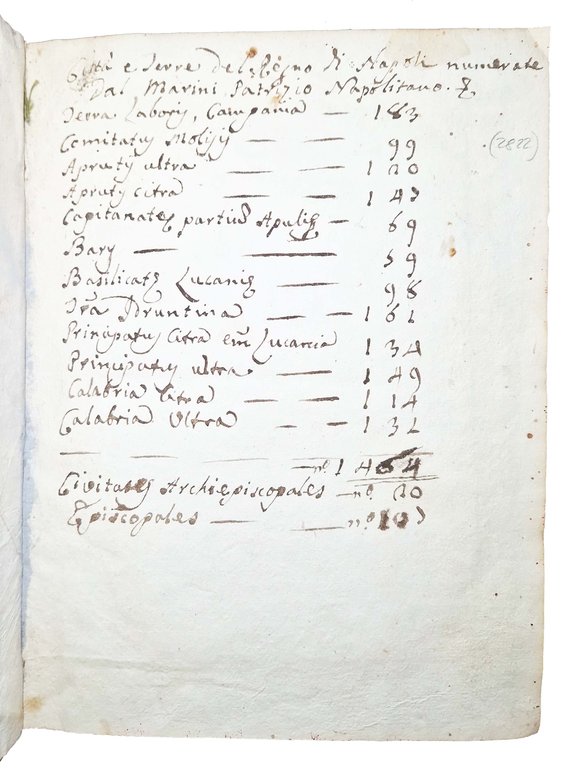 Città e Terre del Regno di Napoli numerate
Dal Marini Patrizio Napolitano.
Terra Laboris, Campania — 183
Comitatus Molisij 99
(2822)
Aprutij ultra — — 120
Aprutij citra — — 147
Capitanatę partiũ Apulię — 69
Bary — — 59
Basilicatę Lucanię — 98
Tr̃a Idruntina — — 161
Principatus Citra Lucania 134
Principatus ultra — 149
Calabria Citra — — 114
Calabria Ultra — — 131
— —nº 1464
Civitates Archiępiscopales —nº 20
Ępiscopales — —nº 107